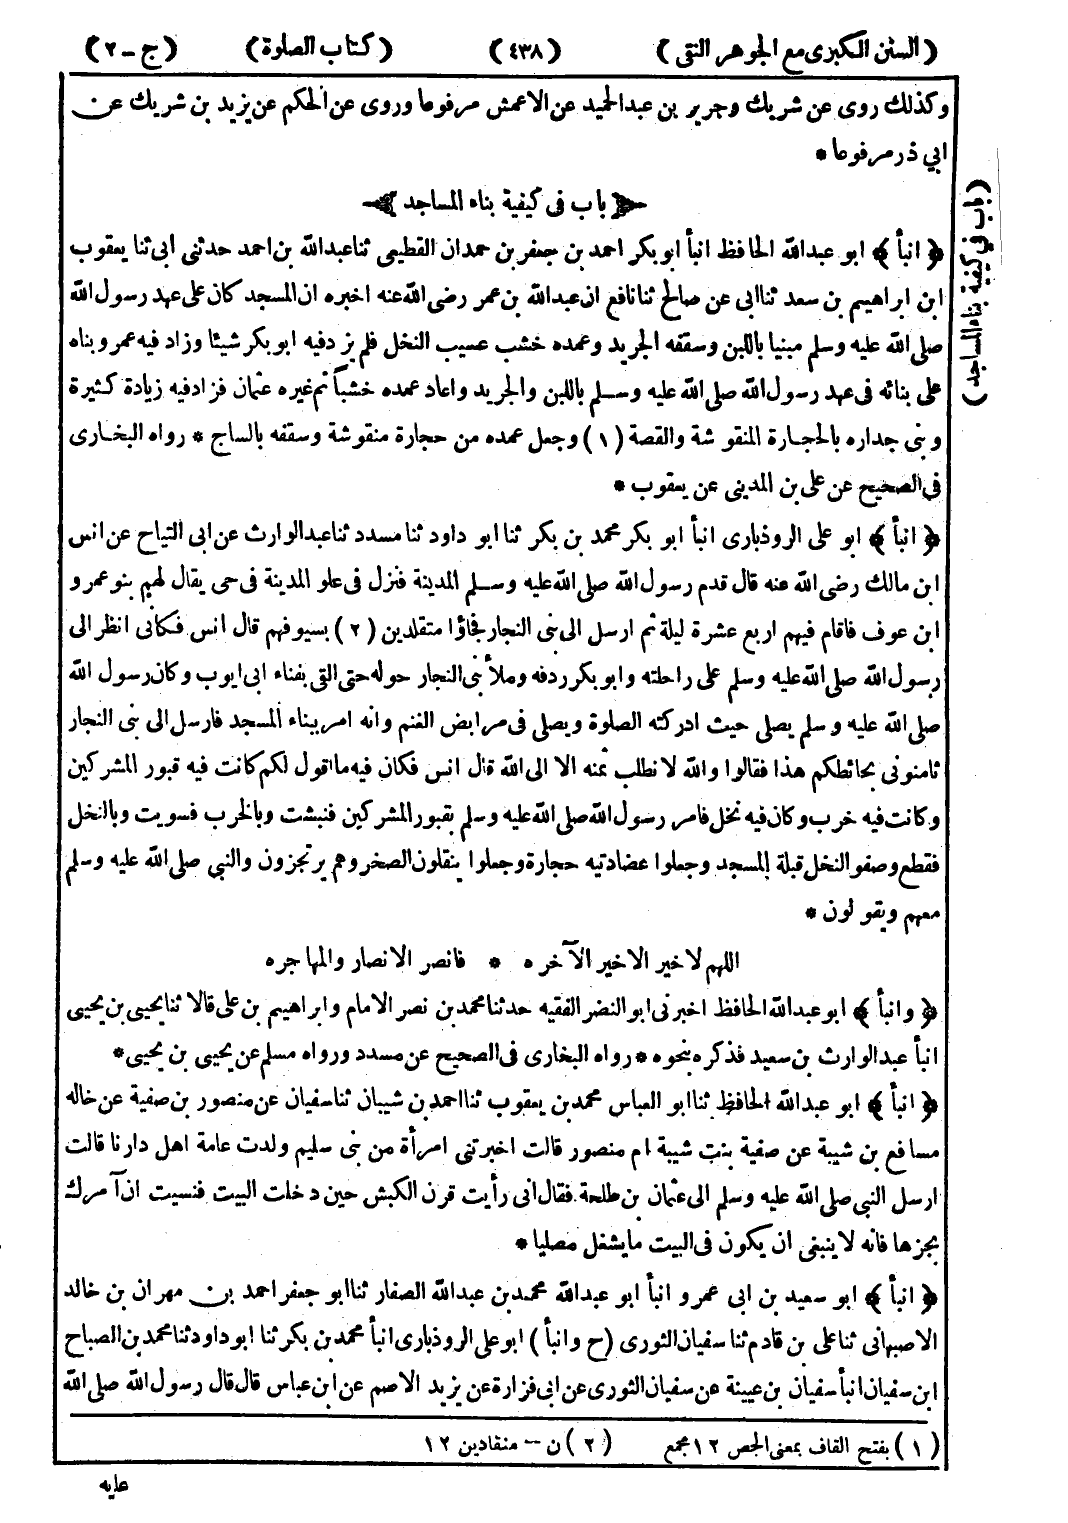 (السنن الكبرى مع الجوهر النقى) (٤٣٨) (كتاب الصلوة) (ج-٢)
وكذلك روى عن شريك وجرير بن عبد الحميد عن الاعمش مرفوعا وروى عن الحكم عن يزيد بن شريك عن
ابي ذر مرفوعا *
باب فى كيفية بناء المساجد
(باب فى كيفية بناء المساجد)
﴿انبأ﴾ ابو عبدالله الحافظ انبأ ابو بكر احمد بن جعفر بن حمدان القطيعى ثنا عبدالله بن احمد حدثنى ابى ثنا يعقوب
ابن ابراهيم بن سعد ثنا ابى عن صالح ثنا نافع ان عبدالله بن عمر رضى الله عنه اخبره ان المسجد كان على عهد رسول الله
صلى الله عليه وسلم مبنيا باللبن وسقفه الجريد وعمده خشب عسيب النخل فلم يزد فيه ابو بكر شيئا وزاد فيه عمر وبناه
على بنائه فى عهد رسول الله صلى الله عليه وسلم باللبن والجريد واعاد عمده خشباً ثم غيره عثمان فزاد فيه زيادة كثيرة
وبنى جداره بالحجارة المنقوشة والقصة (١) وجعل عمده من حجارة منقوشة وسقفه بالساج * رواه البخارى
فى الصحيح عن على بن المدينى عن يعقوب *
﴿انبأ﴾ ابو على الروذبارى انبأ ابو بكر محمد بن بكر ثنا ابو داود ثنا مسدد ثنا عبدالوارث عن ابى التياح عن انس
ابن مالك رضى الله عنه قال قدم رسول الله صلى الله عليه وسلم المدينة فنزل فى علو المدينة فى حى يقال لهم بنو عمرو
ابن عوف فاقام فيهم اربع عشرة ليلة ثم ارسل الى بنى النجار فجاؤا متقلدين (٢) بسيوفهم قال انس فكانى انظر الى
رسول الله صلى الله عليه وسلم على راحلته وابو بكر ردفه وملأ بنى النجار حوله حتى القى بفناء ابى ايوب وكان رسول الله
صلى الله عليه وسلم يصلى حيث ادركته الصلوة ويصلى فى مرابض الغنم وانه امر ببناء المسجد فارسل الى بنى النجار
ثامنونى بحائطكم هذا فقالوا والله لا نطلب ثمنه الا الى الله قال انس فكان فيه ما اقول لكم كانت فيه قبور المشركين
وكانت فيه خرب وكان فيه نخل فامر رسول الله صلى الله عليه وسلم بقبور المشركين فنبشت وبالخرب فسويت وبالنخل
فقطع وصفو النخل قبلة المسجد وجعلوا عضادتيه حجارة وجعلوا ينقلون الصخر وهم يرتجزون والنبي صلى الله عليه وسلم
معهم ويقولون *
اللهم لا خير الا خير الآخره * فانصر الانصار والمهاجره
﴿وانبأ﴾ ابو عبدالله الحافظ اخبرنى ابو النضر الفقيه حدثنا محمد بن نصر الامام وابراهيم بن على قالا ثنا يحيى بن يحيى
انبأ عبد الوارث بن سعيد فذكره بنحوه * رواه البخارى فى الصحيح عن مسدد ورواه مسلم عن يحيى بن يحيى *
﴿انبأ﴾ ابو عبدالله الحافظ ثنا ابو العباس محمد بن يعقوب ثنا احمد بن شيبان ثنا سفيان عن منصور بن صفية عن خاله
مسافع بن شيبة عن صفية بنت شيبة ام منصور قالت اخبرتنى امرأة من بنى سليم ولدت عامة اهل دارنا قالت
ارسل النبي صلى الله عليه وسلم الى عثمان بن طلحة فقال انى رأيت قرن الكبش حين دخلت البيت فنسيت ان آمرك
بجزها فانه لا ينبغى ان يكون فى البيت ما يشغل مصليا *
﴿انبأ﴾ ابو سعيد بن ابى عمرو انبأ ابو عبدالله محمد بن عبدالله الصفار ثنا ابو جعفر احمد بن مهران بن خالد
الاصبهانى ثنا على بن قادم ثنا سفيان الثورى (ح وانبأ) ابو على الروذبارى انبأ محمد بن بكر ثنا ابو داود ثنا محمد بن الصباح
ابن سفيان انبأ سفيان بن عيينة عن سفيان الثورى عن ابى فزارة عن يزيد الاصم عن ابن عباس قال قال رسول الله صلى الله
(١) بفتح القاف بمعنى الجص ١٢ مجمع (٢) ن - منقادين ١٢
عليه